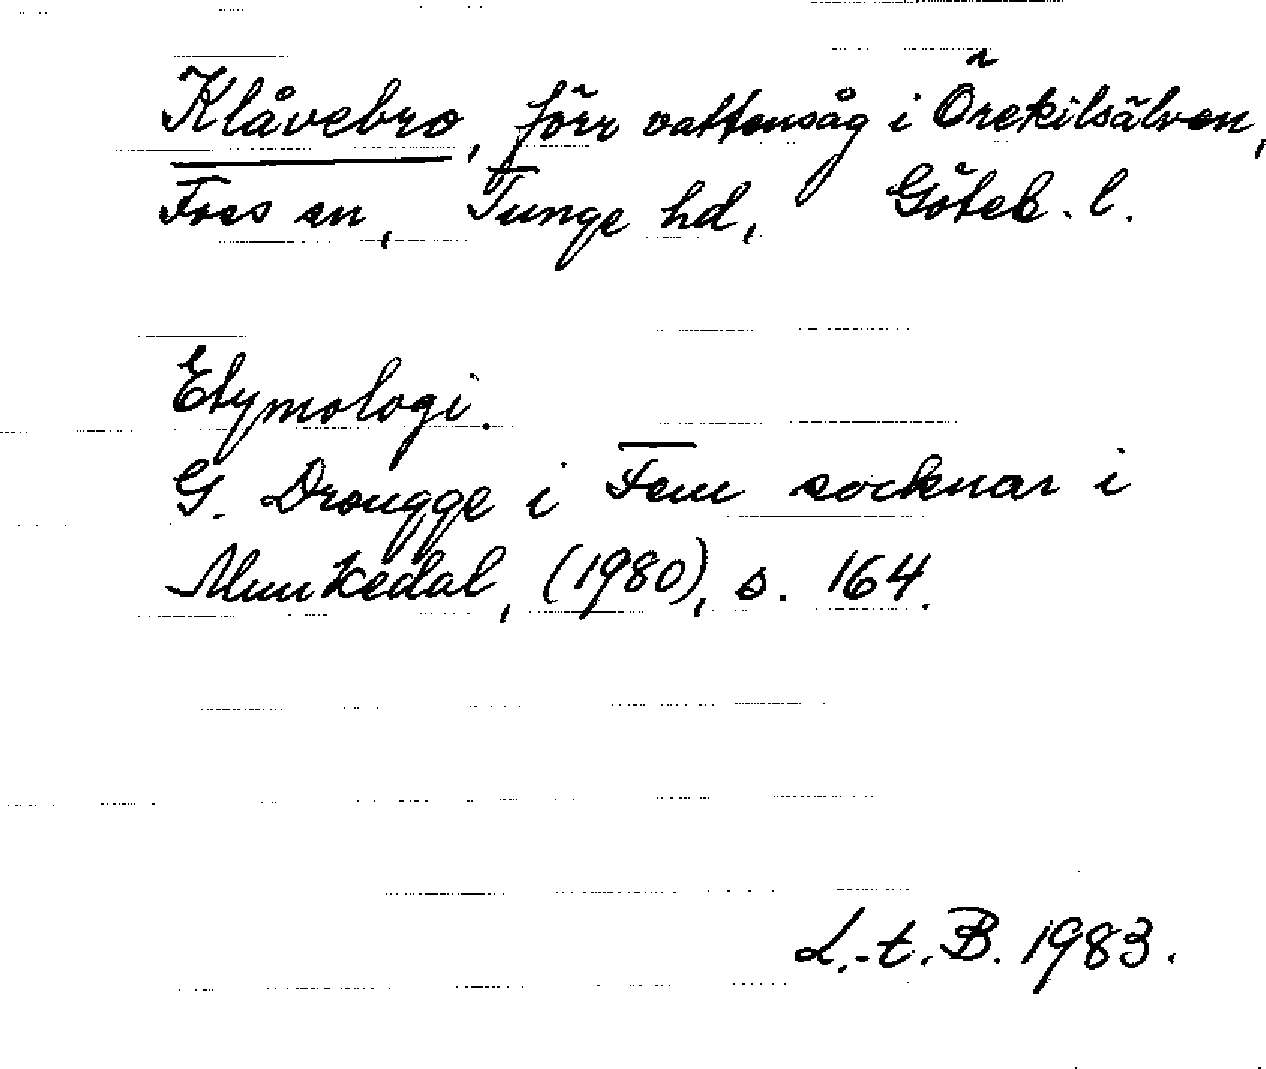 Klåvebro, förr vattensåg i Örekilsälven,
Foss sn, Tunge hd, Göteb. l.
Etymologi.
G. Drougge i Fem socknar i
Munkedal, (1980), s. 164.
L.-t. B. 1983.